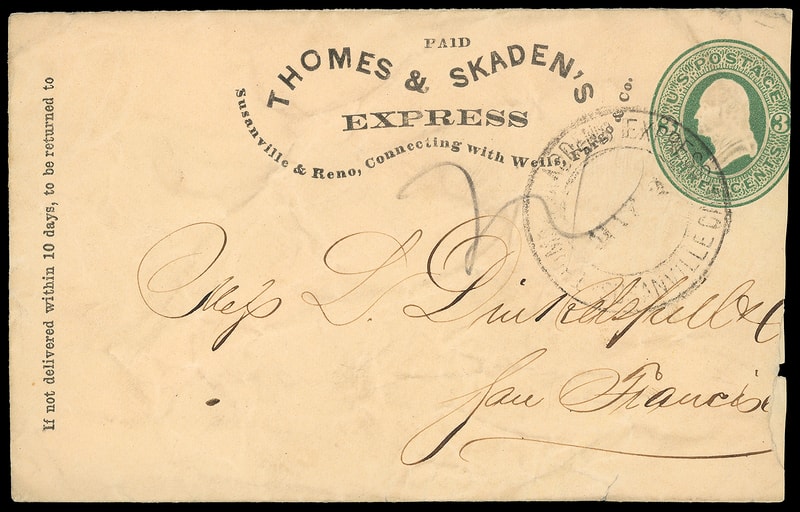 If not delivered within 10 days, to be returned to
PAID
THOMES & SKADEN'S
EXPRESS
Susanville & Reno, Connecting with Wells, Fargo & Co.
U.S. POSTAGE
3
CENTS
EXPRESS
Mess L. Dinkelspiell & C
San Francis